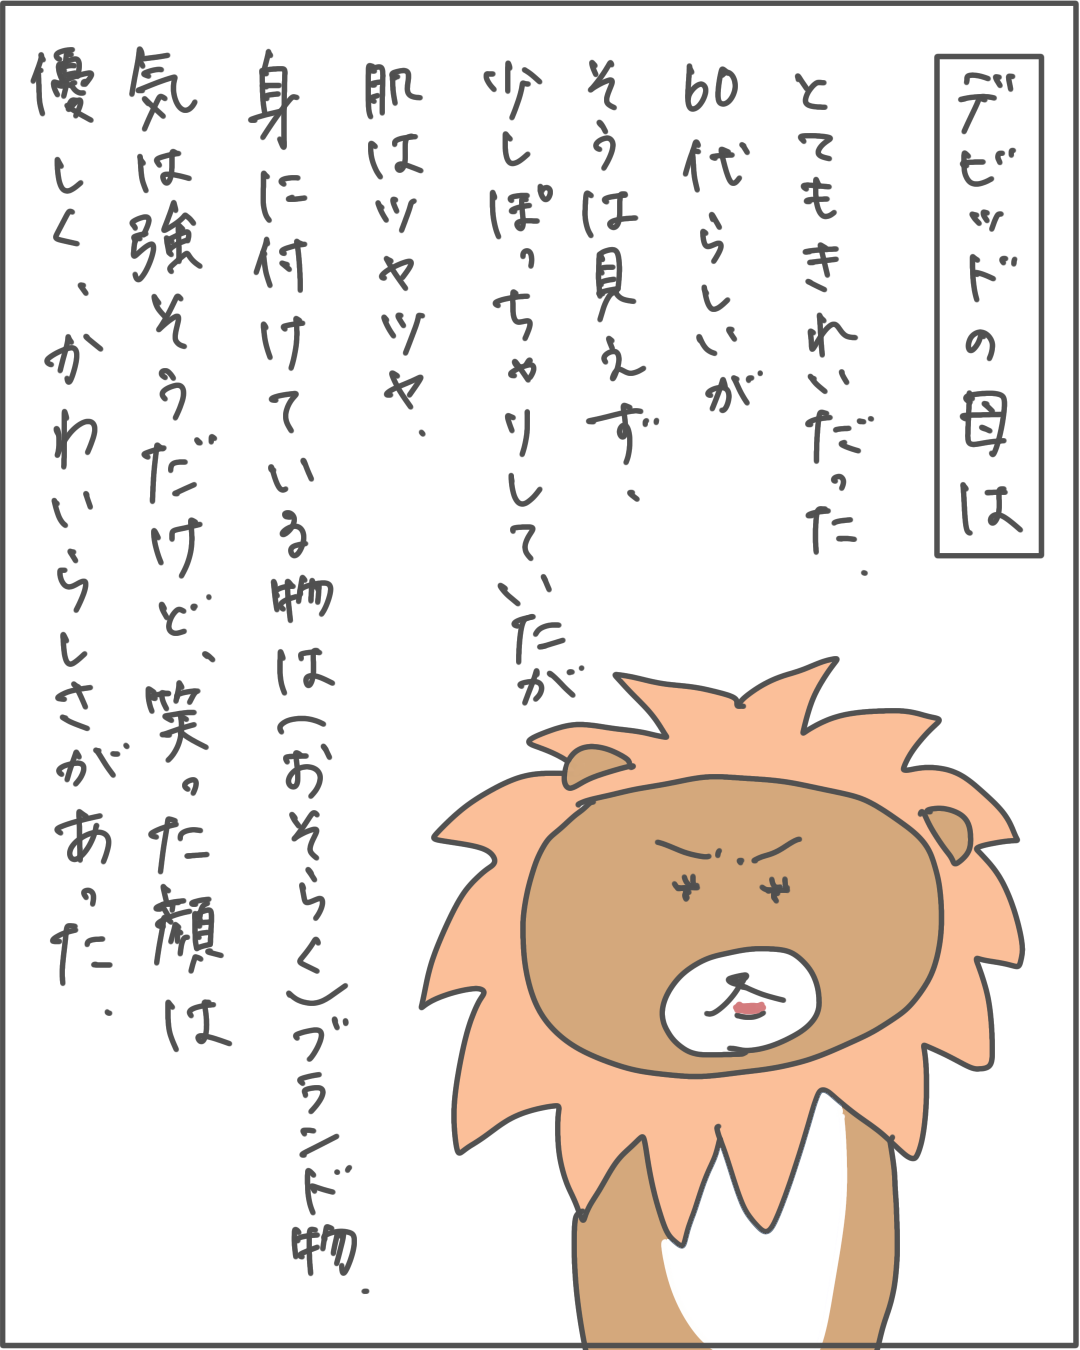 デビッドの母は
とてもきれいだった.
60代らしいが
そうは見えず、
少しぽっちゃりしていたが
肌はツヤツヤ.
身に付けている物は(おそらく)ブランド物.
気は強そうだけど、笑った顔は
優しく、かわいらしさがあった.